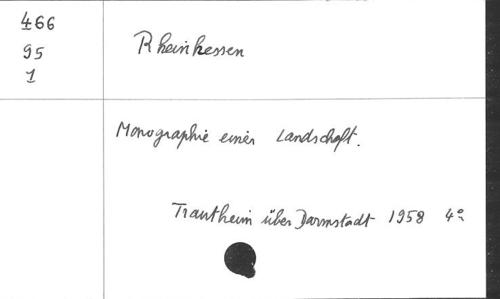 466
95
1
Rheinhessen
Monographie einer Landschaft.
Trautheim über Darmstadt 1958 4°